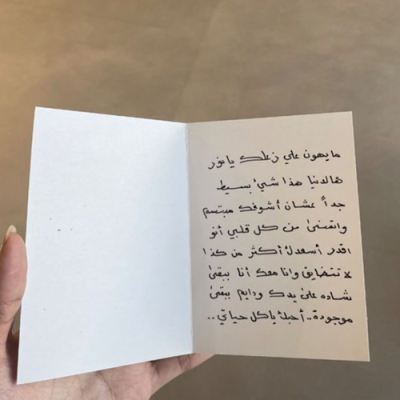 مايهون علي زعلك يانور
هالدنيا هذا شيء بسيط
جداً عشان أشوفك مبتسم
واتمنى من كل قلبي أنو
اقدر أسعدك أكثر من كذا
لا تتضايق وانا معك أنا ببقى
شاده على يدك ودايم ببقى
موجودة.. أحبك ياكل حياتي..